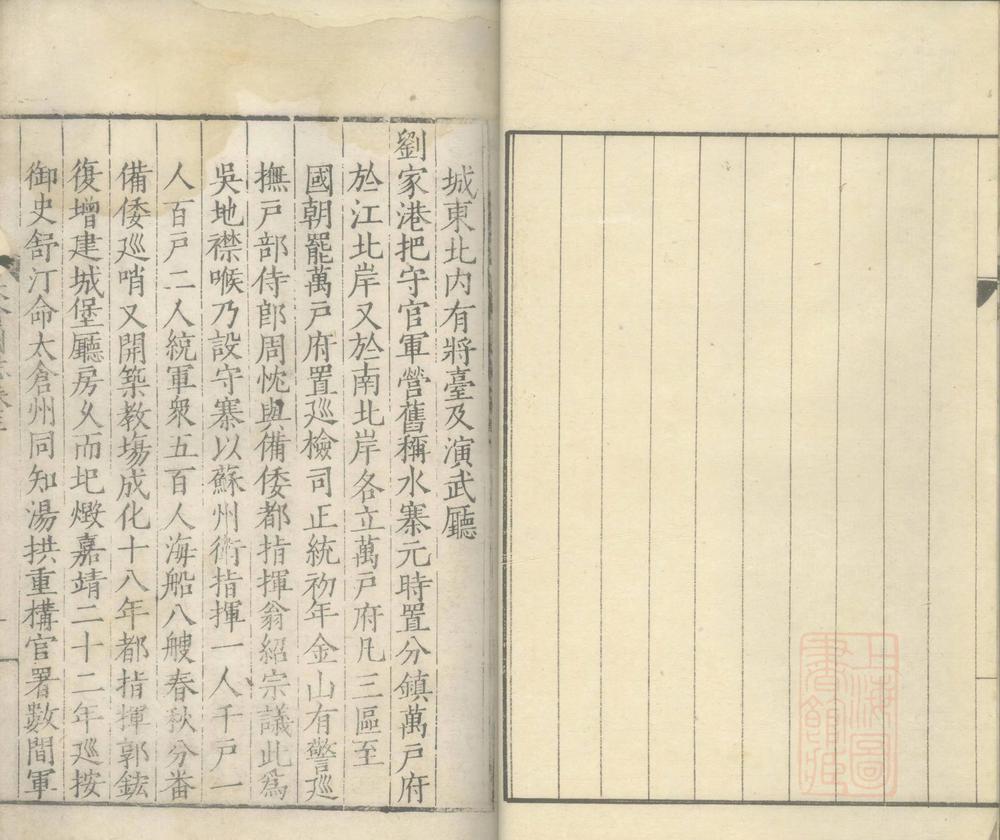 上海圖
書館藏
城東北内有將臺及演武廳
劉家港把守官軍營舊稱水寨元時置分鎮萬戸府
於江北岸又於南北岸各立萬戸府凡三區至
國朝罷萬戸府置巡檢司正統初年金山有警巡
撫戸部侍郎周忱與備倭都指揮翁紹宗議此爲
吳地襟喉乃設守寨以蘇州衛指揮一人千戸一
人百戸二人統軍衆五百人海船八艘春秋分番
備倭巡哨又開築教塲成化十八年都指揮郭鋐
復增建城堡廳房久而圮燬嘉靖二十二年巡按
御史舒汀命太倉州同知湯拱重構官署數間軍